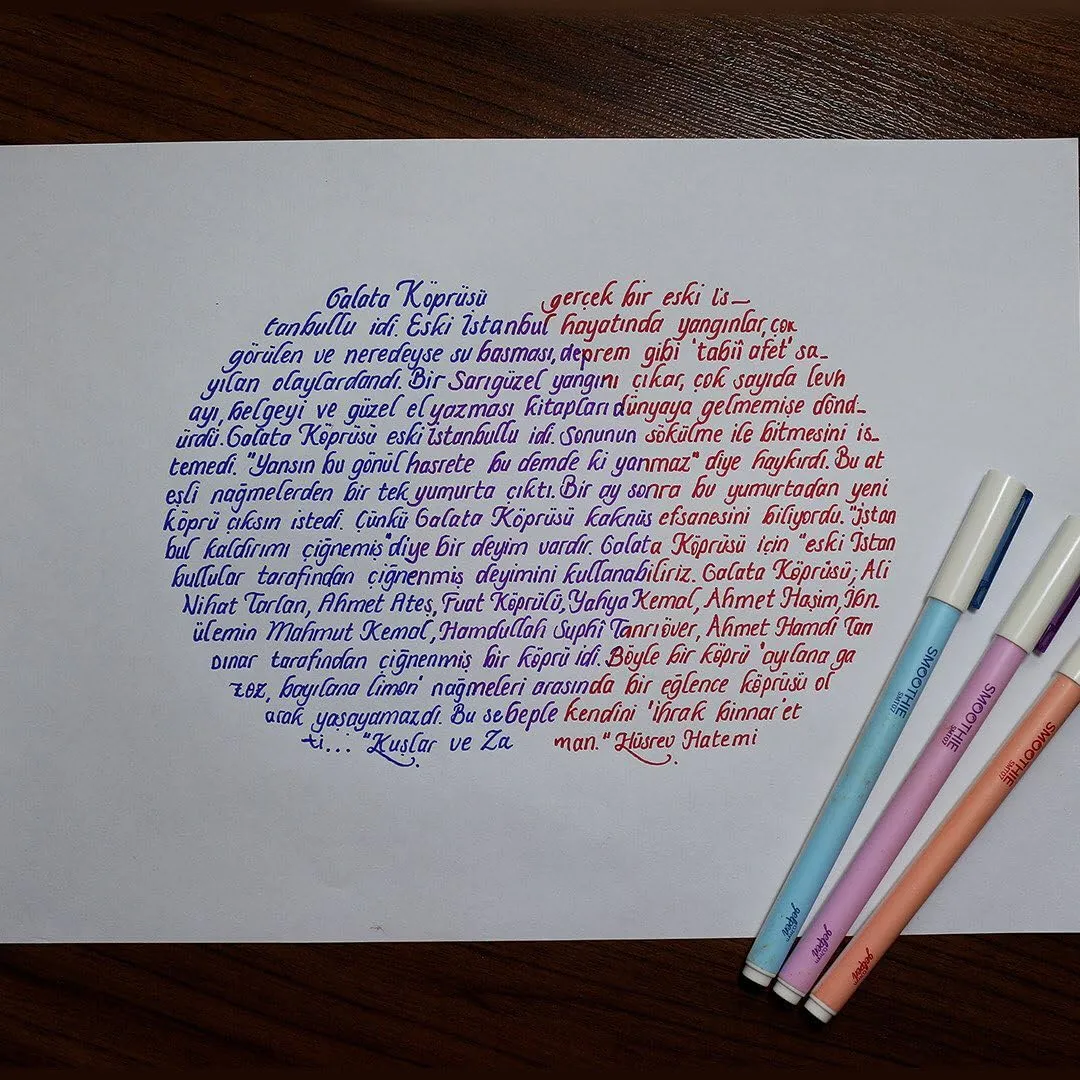 Galata Köprüsü gerçek bir eski İs_
tanbullu idi. Eski İstanbul hayatında yangınlar, çok
görülen ve neredeyse su basması, deprem gibi 'tabiî afet' sa_
yılan olaylardandı. Bir Sarıgüzel yangını çıkar, çok sayıda levh
ayı, belgeyi ve güzel el yazması kitapları dünyaya gelmemişe dönd_
ürdü. Galata Köprüsü eski İstanbullu idi. Sonunun sökülme ile bitmesini is_
temedi. "Yansın bu gönül hasrete bu demde ki yanmaz" diye haykırdı. Bu at
eşli nağmelerden bir tek yumurta çıktı. Bir ay sonra bu yumurtadan yeni
köprü çıksın istedi. Çünkü Galata Köprüsü kaknüs efsanesini biliyordu. "İstan
bul kaldırımı çiğnemiş" diye bir deyim vardır. Galata Köprüsü için "eski İstan
bullular tarafından çiğnenmiş deyimini kullanabiliriz. Galata Köprüsü; Ali
Nihat Tarlan, Ahmet Ateş, Fuat Köprülü, Yahya Kemal, Ahmet Haşim, İbn_
ülemin Mahmut Kemal, Hamdullah Suphî Tanrıöver, Ahmet Hamdi Tan
pınar tarafından çiğnenmiş bir köprü idi. Böyle bir köprü 'ayılana ga
zoz, bayılana limon' nağmeleri arasında bir eğlence köprüsü ol
arak yaşayamazdı. Bu sebeple kendini 'ihrak binnar' et
ti... "Kuşlar ve Za man." Hüsrev Hatemi
SMOOTHIE
SMT07
SMOOTHIE
SMT07
SMOOTHIE
SMT07